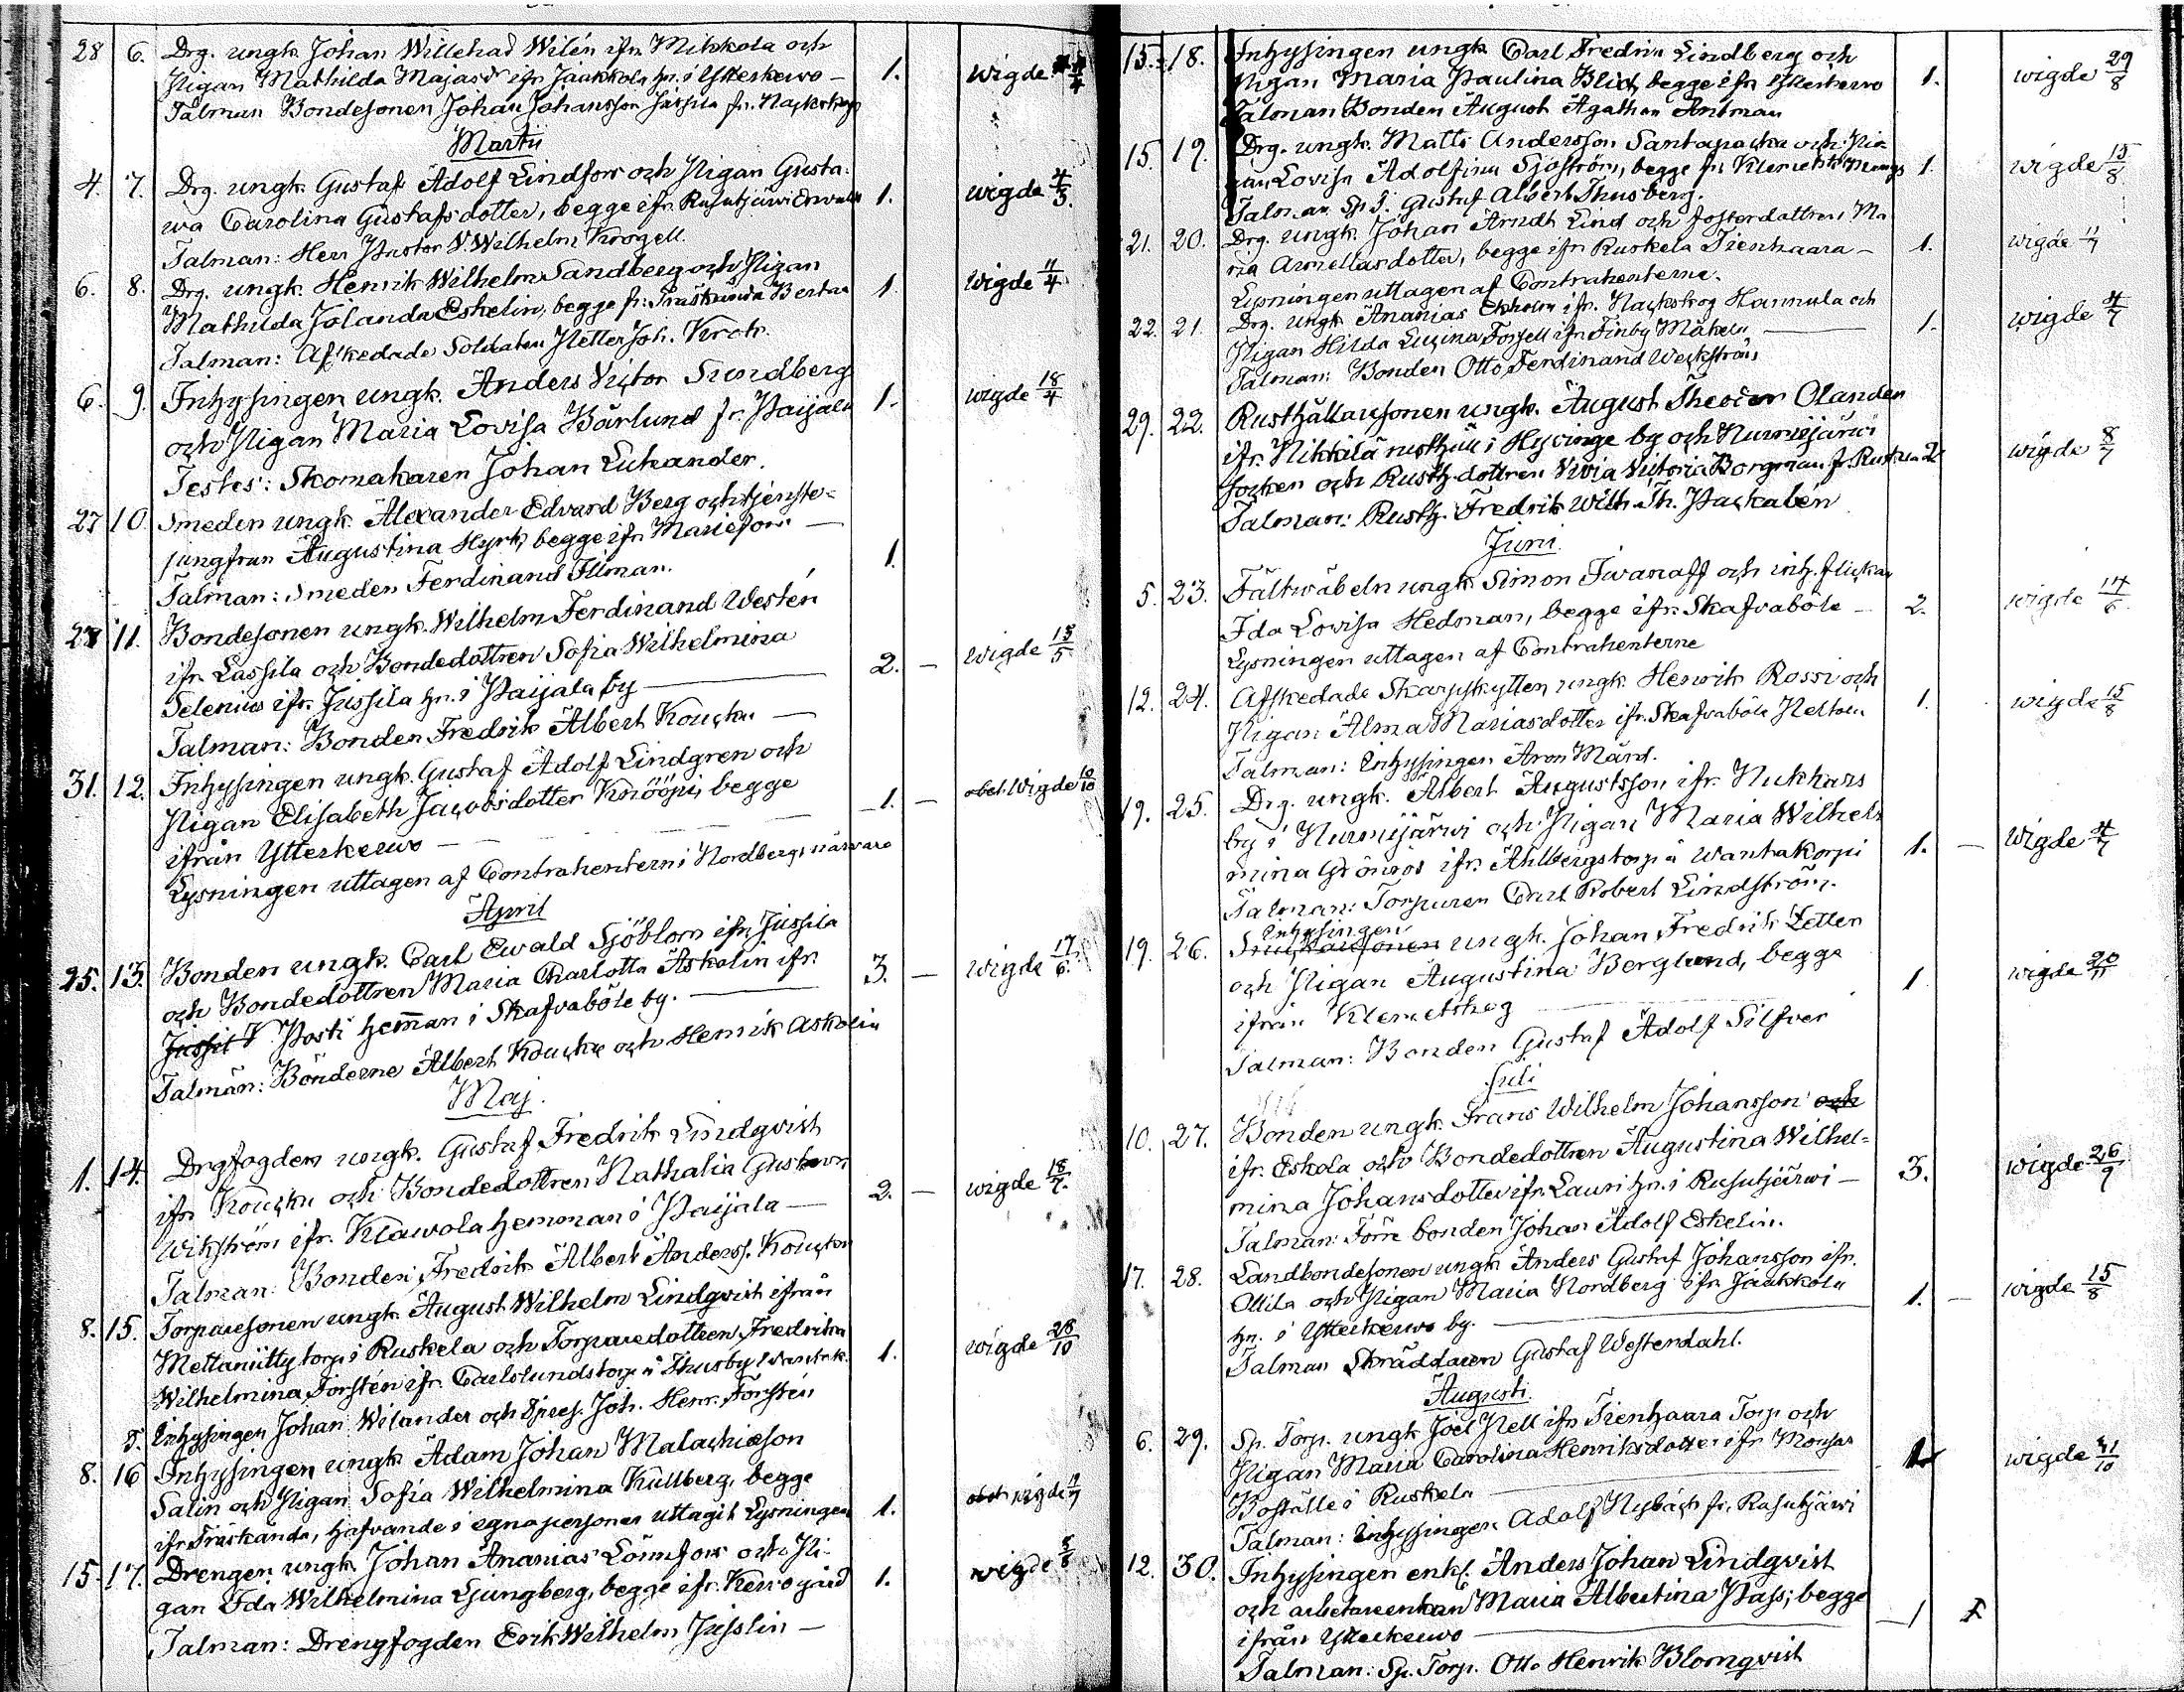 28 6. Drg. ungk. Johan Willehad Wilén ifr. Mikkola och
Pigan Mathilda Majasdr ifr. Jaakkola hn. i Ytterkerwo — 1. wigde
Talman Bondesonen Johan Johansson Jussila fr.
Martii
4. 7. Drg. ungk. Gustaf Adolf Lindfors och Pigan Gusta-
wa Carolina Gustafsdotter, begge ifr. Rusutjärwi 1. wigde 4/3.
Talman: Herr Pastor V. Wilhelm Krogell.
6. 8. Drg. ungk. Henrik Wilhelm Sandberg och Pigan
Mathilda Jolanda Eskelin, begge fr. Träskända 1. wigde 11/4
Talman: Afskedade Soldaten Petter Joh. Krok.
6. 9. Inhysingen ungk. Anders Victor Sundberg
och Pigan Maria Lovisa Bärlund fr. Paijala 1. wigde 18/4
Testes: Skomakaren Johan Lukander.
27 10. Smeden ungk. Alexander Edvard Berg och tjenste-
jungfrun Augustina Hyrk, begge ifr. Mariefors — 1.
Talman: Smeden Ferdinand Illman.
27 11. Bondesonen ungk. Wilhelm Ferdinand Westén
ifr. Lassila och Bondedottren Sofia Wilhelmina 2. — wigde 13/5
Selenius ifr. Jussila hn. i Paijala by —
Talman: Bonden Fredrik Albert Koucku —
31. 12. Inhysingen ungk. Gustaf Adolf Lindgren och
Pigan Elisabeth Jacobsdotter Knööpi, begge 1. — wigde 10/10
ifrån Ytterkerwo —
Lysningen uttagen af Contrahenterne i Nordbergs närwaro
April
25. 13. Bonden ungk. Carl Ewald Sjöblom ifr. Jussila
och Bondedottren Maria Charlotta Askolin ifr. 3. — wigde 17/6.
Posti hemman i Skafvaböle by. —
Talmän: Bönderne Albert Koucku och Henrik Askolin
Maj.
1. 14. Drgfogden ungk. Gustaf Fredrik Lindqvist
ifr. Koucku och Bondedottren Nathalia Gustava 2. — wigde 18/7.
Wikström ifr. Klawola hemman i Paijala —
Talman: Bonden Fredrik Albert Anderss. Koucku
8. 15. Torparesonen ungk. August Wilhelm Lindqvist ifrån
Mettäniitty torp i Ruskela och Torparedottren Fredrika 1. wigde 28/10
Wilhelmina Forstén ifr. Carlslundstorp i Thusby
T. Inhysingen Johan Wilander och Joh. Henr. Forstén
8. 16 Inhysingen ungk. Adam Johan Malachiæson
Salin och Pigan Sofia Wilhelmina Kullberg, begge 1. wigde
ifr. Träskända, hafvande i egna personer uttagit Lysningen
15. 17. Drengen ungk. Johan Ananias Lönnfors och Pi-
gan Ida Wilhelmina Ljungberg, begge ifr. Kerwo gård 1. wigde
Talman: Drengfogden Erik Wilhelm Jusslin —
15. 18. Inhysingen ungk. Carl Fredrik Lindberg och
Pigan Maria Paulina Blid, begge ifr. Ytterkerwo 1. wigde 29/8
Talman Bonden August Agathon Antman
15. 19. Drg. ungk. Matts Andersson Santapacka och Pi-
gan Lovisa Adolfina Sjöström, begge fr. Klemetskog 1. wigde 15/8
Talman Gustaf Albert Thusberg.
21. 20. Drg. ungk. Johan Arndt Lind och fosterdottren Ma-
ria Armellasdotter, begge ifr. Ruskela Tienhaara — 1. wigde
Lysningen uttagen af Contrahenterne.
22. 21. Drg. ungk. Ananias Ekholm ifr. Nackskog Hannula och
Pigan Hilda Lucina Forsell ifr. Finby Mäkelä — 1. wigde 4/7
Talman: Bonden Otto Ferdinand Weckström
29. 22. Rusthållaresonen ungk. August Theodor Olander
ifr. Nikkilä rusthåll i Hyvinge by och Nurmijärwi 2. wigde 8/7
socken och Rusth.dottren Viva Victoria Borgman fr.
Talman: Rusth. Fredrik Wilh. Th. Packalén
Juni.
5. 23. Fältwäbeln ungk. Simon Iwanaff och inh. flickan
Ida Lovisa Hedman, begge ifr. Skafvaböle — 2. wigde 14/6.
Lysningen uttagen af Contrahenterne
12. 24. Afskedade Skarpskytten ungk. Henrik Rossi och
Pigan Alma Mariasdotter ifr. Skafvaböle 1. wigde 15/8
Talman: Inhysingen Aron Mård.
19. 25. Drg. ungk. Albert Augustsson ifr. Nukkars
by i Nurmijärwi och Pigan Maria Wilhel-
mina Grönroos ifr. Ahlbergstorp å Wantakorpi 1. — wigde 4/7
Talman: Torparen Carl Robert Lindström.
19. 26. Inhysingen ungk. Johan Fredrik Letter
och Pigan Augustina Berglund, begge 1 wigde 20/11
ifrån Klemetskog —
Talman: Bonden Gustaf Adolf Silfver
Juli
10. 27. Bonden ungk. Frans Wilhelm Johansson och
ifr. Eskola och Bondedottren Augustina Wilhel-
mina Johansdotter ifr. Lauri hn. i Rusutjärwi — 3. wigde 26/9
Talman: Förre bonden Johan Adolf Eskelin.
17. 28. Landbondesonen ungk. Anders Gustaf Johansson ifr.
Ollila och Pigan Maria Nordberg ifr. Jaakkola 1. — wigde 15/8
hn. i Ytterkerwo by. —
Talman Skräddaren Gustaf Westerdahl.
Augusti.
6. 29. Sp. Torp. ungk. Joel Nell ifr. Tienhaara Torp och
Pigan Maria Carolina Henriksdotter ifr. 1 wigde 31/10
Boställe i Ruskela —
Talman: Inhysingen Adolf Nybäck fr. Rusutjärwi
12. 30. Inhysingen enkl. Anders Johan Lindqvist
och arbetareenkan Maria Albertina Pass, begge 1
ifrån Ytterkerwo —
Talman: Sp. Torp. Otto Henrik Blomqvist